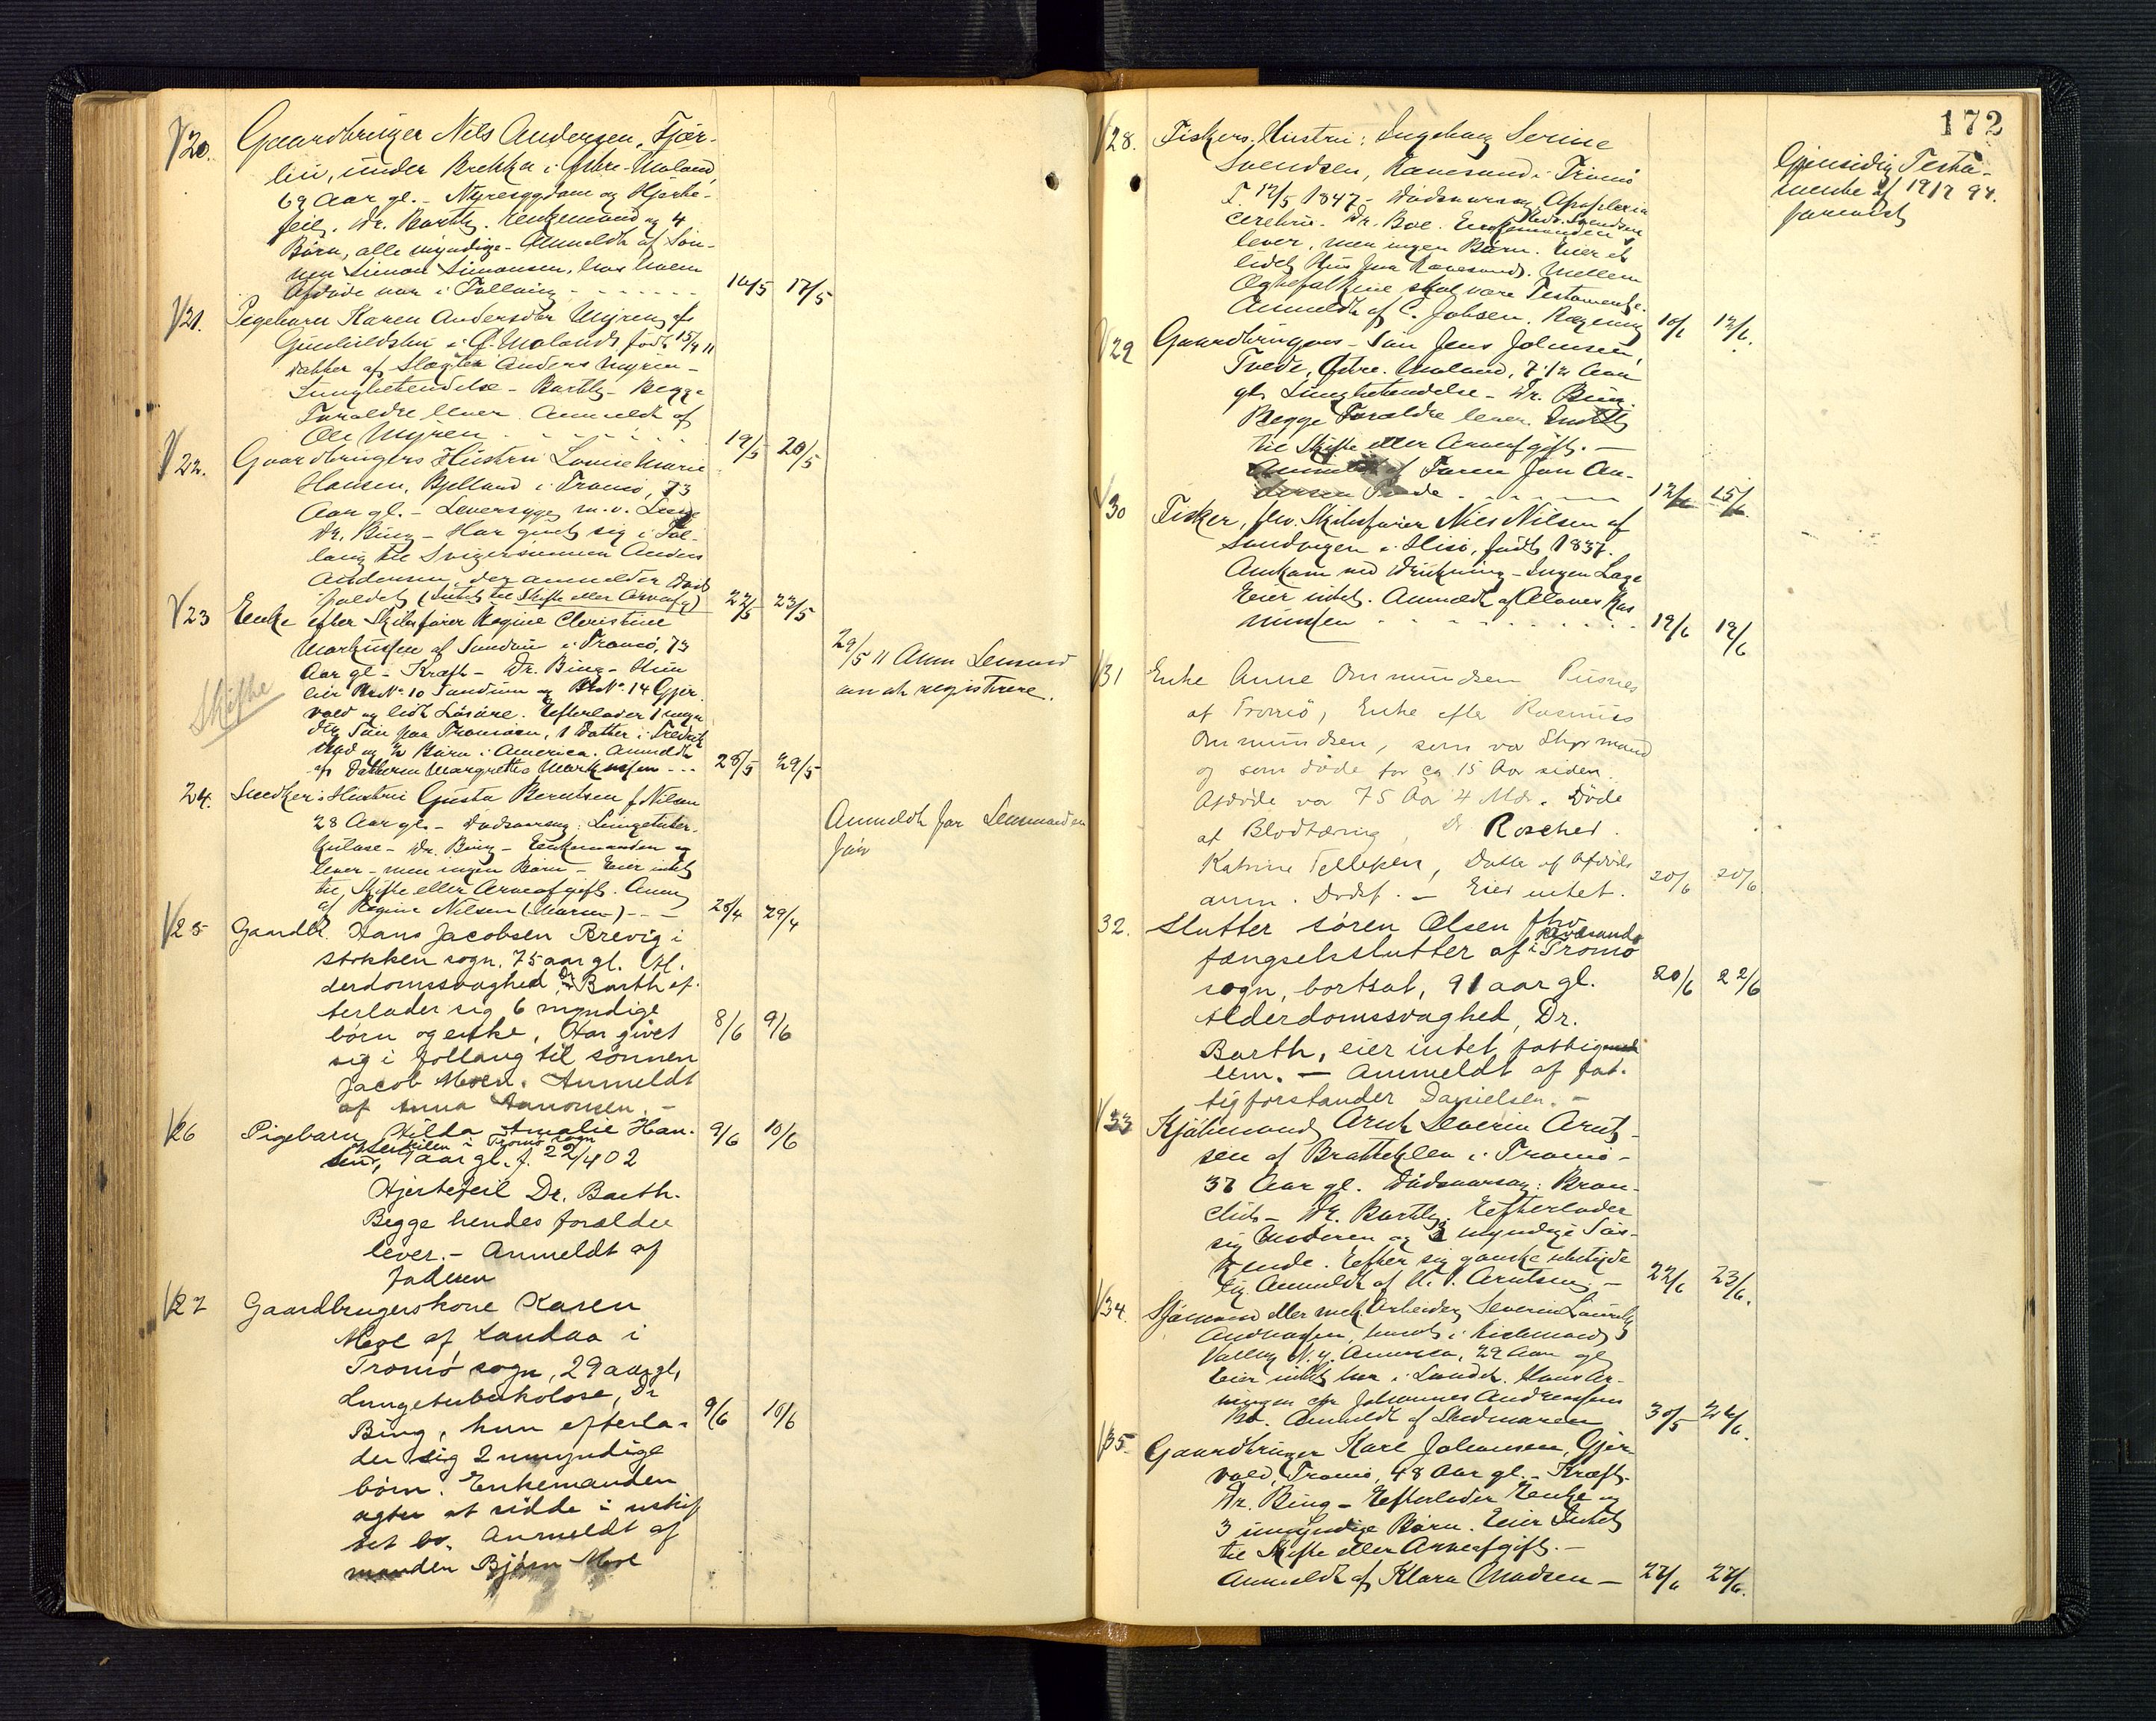 V20. Gaardbruger Nils Andersen, Fjær-
lin, under Brekka i Østre-Moland,
69 Aar gl. - Nyresygdom og Hjerte-
feil. Dr. Barth. Enkemand og 4
Børn, alle myndige. Anmeldt af Søn-
nen Simon Simonsen, hos hvem
Afdøde var i Follaug - - - - - - 16/5 17/5
V21. Pigebarn Karen Andersdtr Myren af
i Ø. Moland, født 15/4 11
Datter af Slagter Anders Myren -
Lungebetændelse - Barth - Begge
Forældre lever. Anmeldt af
Ole Myren - - - - - - 19/5 20/5
V22. Gaardbrugers Hustru Lovise Marie
Hansen, Bjelland i Tromø, 73
Aar gl. - Leversyge m.v. Læge
Dr. Bing - Har givet sig i Fol-
laug til Svigersønnen Anders
Andersen, der anmelder Døds
faldet (Intet til Skifte eller Arveafg) 22/5 23/5
V23 Enke efter Skibsfører Regine Christine
Markussen af Sandum i Tromø, 73
Aar gl - Kræft - Dr. Bing - Hun
eier BrNo. 10 Sandum og BrNo. 14 Gjer-
vold og lidt Løsøre. Efterlader 1 myn
dig Søn paa Tromøen, 1 Datter i Fredrik
stad og 2 Børn i America. Anmeldt
af Datteren Margrethe Markussen - - - 28/5 29/5
Skifte
29/5 11 Anm Lensmd
om at registrere.
24. Snedkers Hustru Gusta Berntsen f. Nilsen
28 Aar gl. - Dødsaarsag: Lungetuber-
kulose - Dr. Bing - Enkemanden
lever - men ingen Børn - Eier intet
til Skifte eller Arveafgift. Anm
af Regine Nilsen (Moren) - - - 28/4 29/4
Anmeldt for Lensmanden
før
V25 Gaardbr. Hans Jacobsen Brevig i
Stokken sogn, 75 aar gl. Al.
derdomssvaghed, Dr Barth ef-
terlader sig 6 myndige
børn og enke, Har givet 8/6 9/6
sig i follaug til sønnen
Jacob Moen. Anmeldt
af Anna Aanonsen. -
V26 Pigebarn Hilda Amalie Han- 9/6 10/6
i Tromø sogn
sen, aar gl. f. 22/4 02
Hjertefeil Dr. Barth.
Begge hendes forældre
lever. - Anmeldt af
faderen
V27 Gaardbrugerskone Karen
Moe af Sandaa i
Tromø sogn, 29 aar gl,
Lungetuberkolose, Dr
Bing, hun efterla- 9/6 10/6
der sig 2 umyndige
børn. Enkemanden
agter at sidde i uskif
tet bo. Anmeldt af
manden Bjørn Moe
172
V28. Fiskers Hustru: Ingeborg Serine
Svendsen, Ravesund i Tromø
F. 12/5 1847 - Dødsaarsag Apoplexia
cerebri. Dr. Boe. Enkemanden Svendsen
lever, men ingen Børn. Eier et
lidet Hus paa Ravesund. Mellem
Ægtefolkene skal være Testamente.
Anmeldt af C. Jobsen. 10/6 12/6.
Gjensidig Testa-
mente af 1917 97.
foreviist
V29 Gaardbrugers Søn Jens Johnsen,
Tvede, Østre Moland, 7 1/2 Aar
gl. Lungebetændelse - Dr. Bing.
Begge Forældre lever. Intet
til Skifte eller Arveafgift. -
Anmeldt af Faren Jon An-
dersen Tvede - - - - - 12/6 15/6.
V30 Fisker, fhv. Skibsfører Niels Nilsen af
Sandvigen i Hisø, født 1837.
Omkom ved Drukning - Ingen Læge
Eier intet. Anmeldt af Ras
mussen - - - - - - - - - 19/6 19/6
V31 Enke Anne Ommundsen Pusnes
af Tromø, Enke efter Rasmus
Ommundsen, som var Styrmand
og som døde for ca 15 Aar siden.
Afdøde var 75 Aar 4 Mdr. Døde
af Blodtæring, Dr Roscher.
Katrine Tellefsen, Datter af Afdøde 20/6 20/6
anm. Dødsf. - Eier intet.
32. Slutter Søren Olsen fhv.
fængselsslutter af Revesand i Tromø
sogn, bortsat, 91 aar gl. 20/6 22/6
Alderdomssvaghed, Dr.
Barth, eier intet, fattig
lem. - Anmeldt af fat-
tigforstander Danielsen. -
V33 Sjømand Arnt Severin Arnt-
sen af Bratteklev i Tromø -
37 Aar gl. Dødsaarsag: Bron-
chit - Dr. Barth. Efterlader
sig Moderen og 3 myndige Søs-
kende. Efter sig ganske ubetyde
lig. Anmeldt af Arntsen. - 22/6 23/6.
V34. Sjømand eller mek Arbeider Severin Lauritz
Andreassen, i Richmond
Valley N.Y. America, 29 Aar gl
Eier intet her i Landet.
Johannes Andreassens
Bo. Anmeldt af Stedmoren 30/5 26/6.
V35. Gaardbruger Karl Johansen, Gjer
vold, Tromø, 48 Aar gl. - Kræft.
Dr. Bing - Efterlader Enke og
3 umyndige Børn. Eier Intet
til Skifte eller Arveafgift. -
Anmeldt af Klara Madsen - 27/6 27/6.